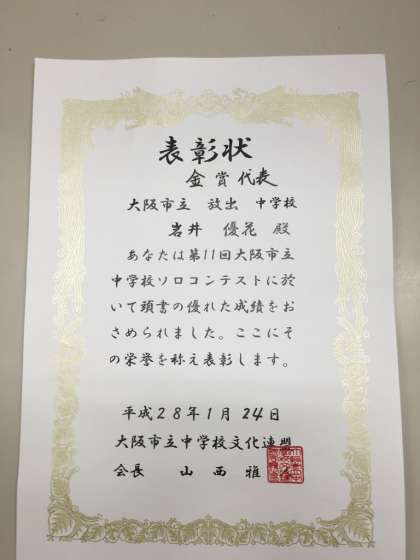 表彰状
金賞代表
大阪市立 放出 中学校
岩井 優花 殿
あなたは第11回大阪市立
中学校ソロコンテストに於
いて頭書の優れた成績をお
さめられました。ここにそ
の栄誉を称え表彰します。
平成28年1月24日
大阪市立中学校文化連盟
会長 山西雅